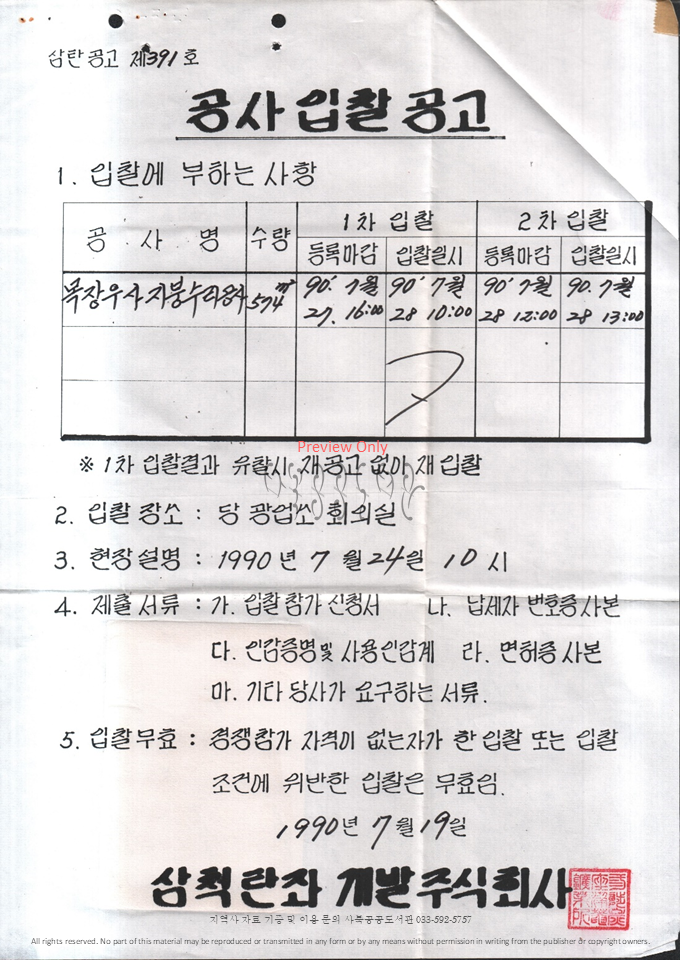 삼탄공고 제391호
공사입찰공고
1. 입찰에 부하는 사항
공 사 명 수량 1차 입찰 2차 입찰
등록마감 입찰일시 등록마감 입찰일시
목장우사 지붕수리공사 574㎡ 90.'7월 90'7월 90'7월 90.7월
27. 16:00 28 10:00 28 12:00 28 13:00
Preview Only
※ 1차 입찰결과 유찰시 재공고 없이 재입찰
2. 입찰장소 : 당 광업소 회의실
3. 현장설명 : 1990년 7월 24일 10시
4. 제출서류 : 가. 입찰참가신청서 나. 납세자 번호증사본
다. 인감증명및 사용인감계 라. 면허증사본
마. 기타 당사가 요구하는 서류.
5. 입찰무효 : 경쟁참가 자격이 없는자가 한 입찰 또는 입찰
조건에 위반한 입찰은 무효임.
1990년 7월 19일
삼척탄좌 개발주식회사
지역사 자료 기증 및 이용 문의 사북공공도서관 033-592-5757
All rights reserved. No part of this material may be reproduced or transmitted in any form or by any means without permission in writing from the publisher or copyright owners.